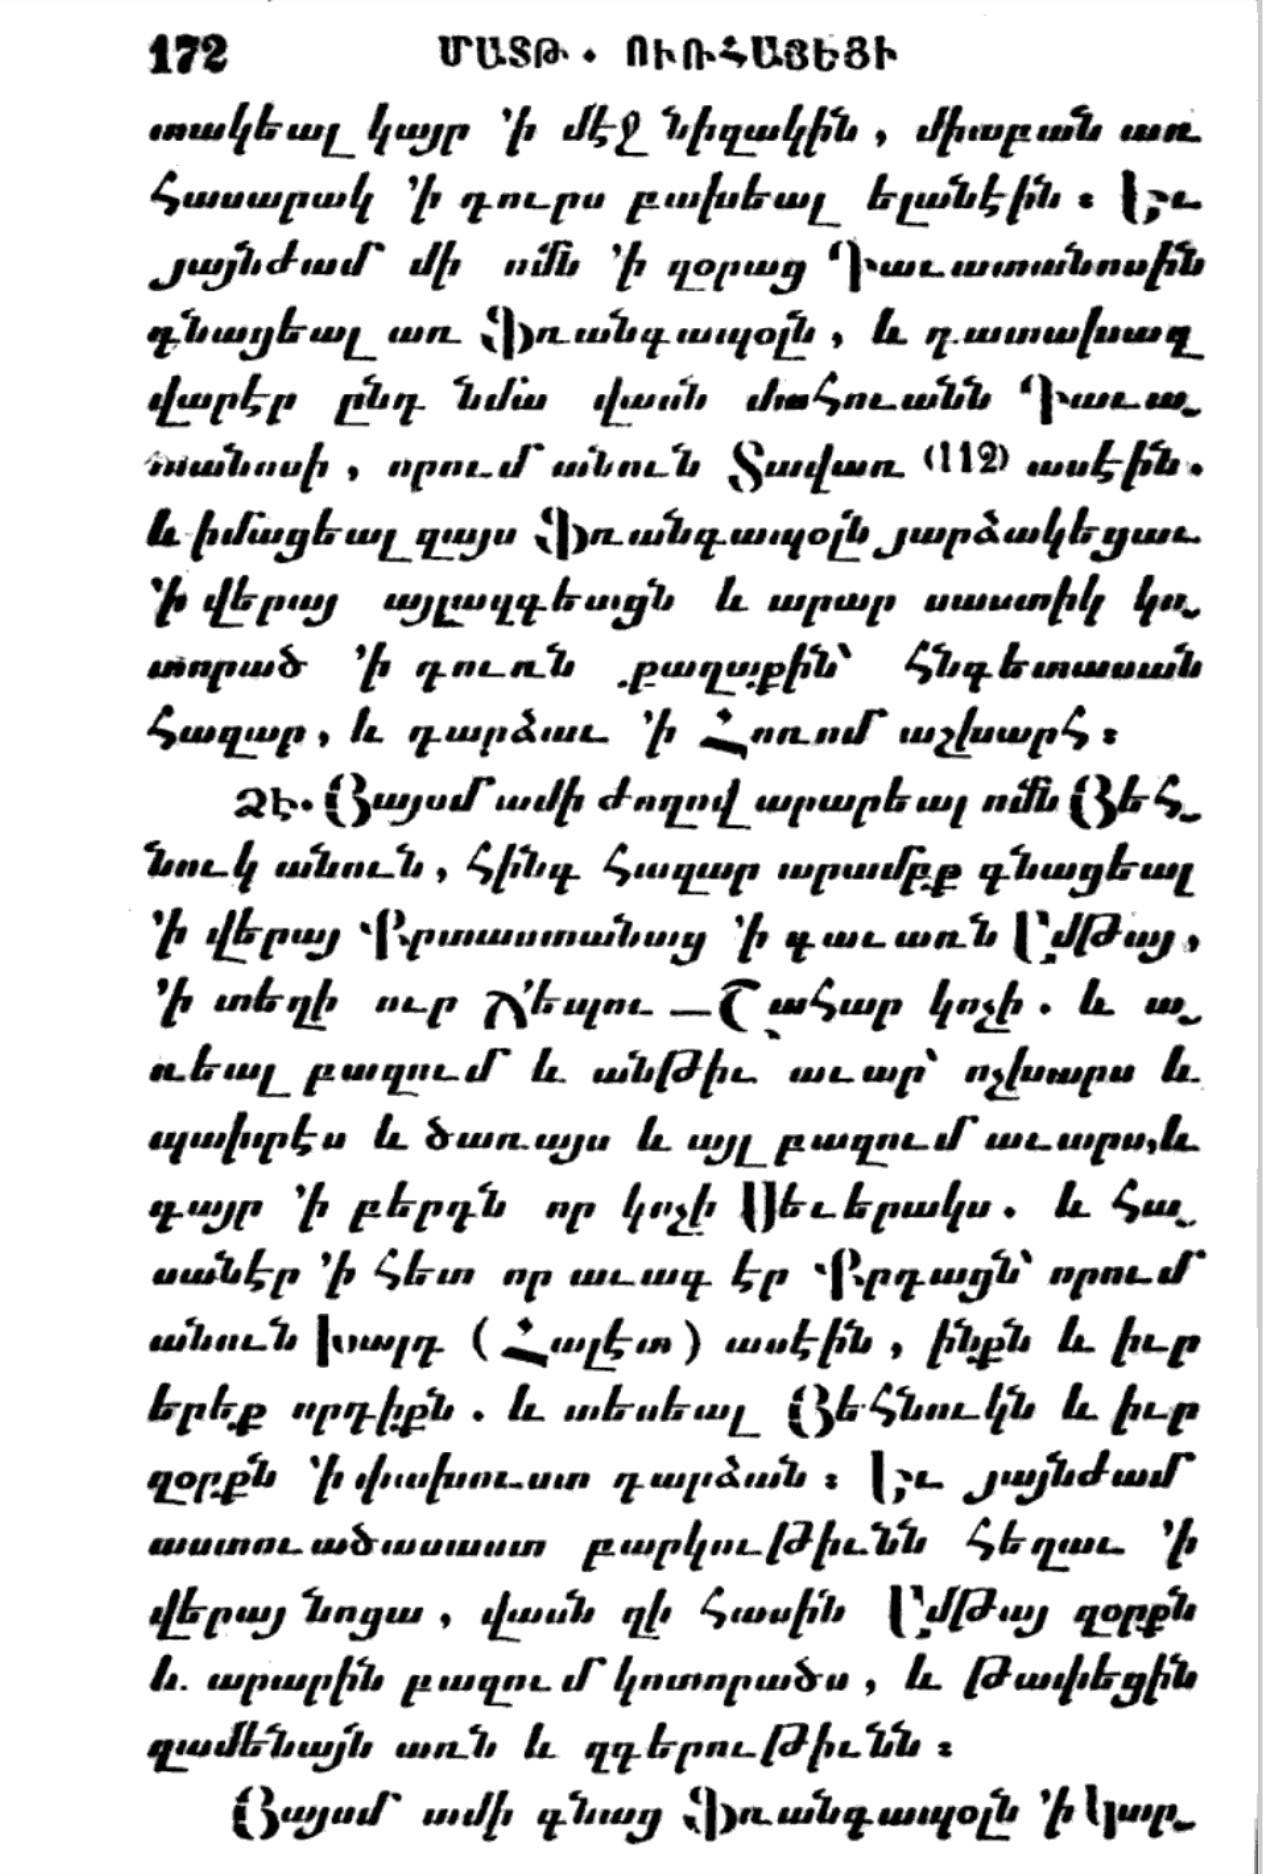 172 ՄԱՏԹ. ՈՒՌՀԱՅԵՑԻ
տակեալ կայր ՚ի մէջ նիզակին, միաբան առ
հասարակ ՚ի դուրս բախեալ ելանէին։ Եւ
յայնժամ մի ոմն ՚ի զօրաց Դաւատանոսին
գնացեալ առ Ֆռանգապօլն, և դատախազ
վարէր ընդ նմա վասն մահուանն Դաւա֊
տանոսի, որում անուն Տավառ (112) ասէին.
և իմացեալ զայս Ֆռանգապօլն յարձակեցաւ
՚ի վերայ այլազգեացն և արար սաստիկ կո֊
տորած ՚ի դուռն քաղաքին՝ հնգետասան
հազար, և դարձաւ ՚ի Հոռոմ աշխարհ։
ՁԷ. Յայսմ ամի ժողով արարեալ ոմն Յեհ֊
նուկ անուն, հինգ հազար արամբք գնացեալ
՚ի վերայ Քրտաստանաց ՚ի գաւառն Ըմթայ,
՚ի տեղի ուր Ճեպու—Շահար կոչի. և ա֊
ռեալ բազում և անթիւ աւար՝ ոչխարս և
պախրէս և ծառայս և այլ բազում աւարս, և
գայր ՚ի բերդն որ կոչի Սեւերակս. և հա֊
սանէր ՚ի հետ որ աւագ էր Քրդացն՝ որում
անուն Խալդ (Հալէտ) ասէին, ինքն և իւր
երեք որդիքն. և տեսեալ Յեհնուկն և իւր
զօրքն ՚ի փախուստ դարձան։ Եւ յայնժամ
աստուածասաստ բարկութիւնն հեղաւ ՚ի
վերայ նոցա, վասն զի հասին Ըմթայ զօրքն
և արարին բազում կոտորածս, և թափեցին
զամենայն առն և զգերութիւնն։
Յայսմ ամի գնաց Ֆռանգապօլն ՚ի Կար֊